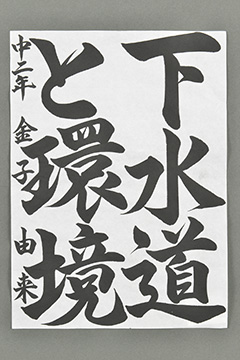 下水道
と環境
中二年 金子 由来